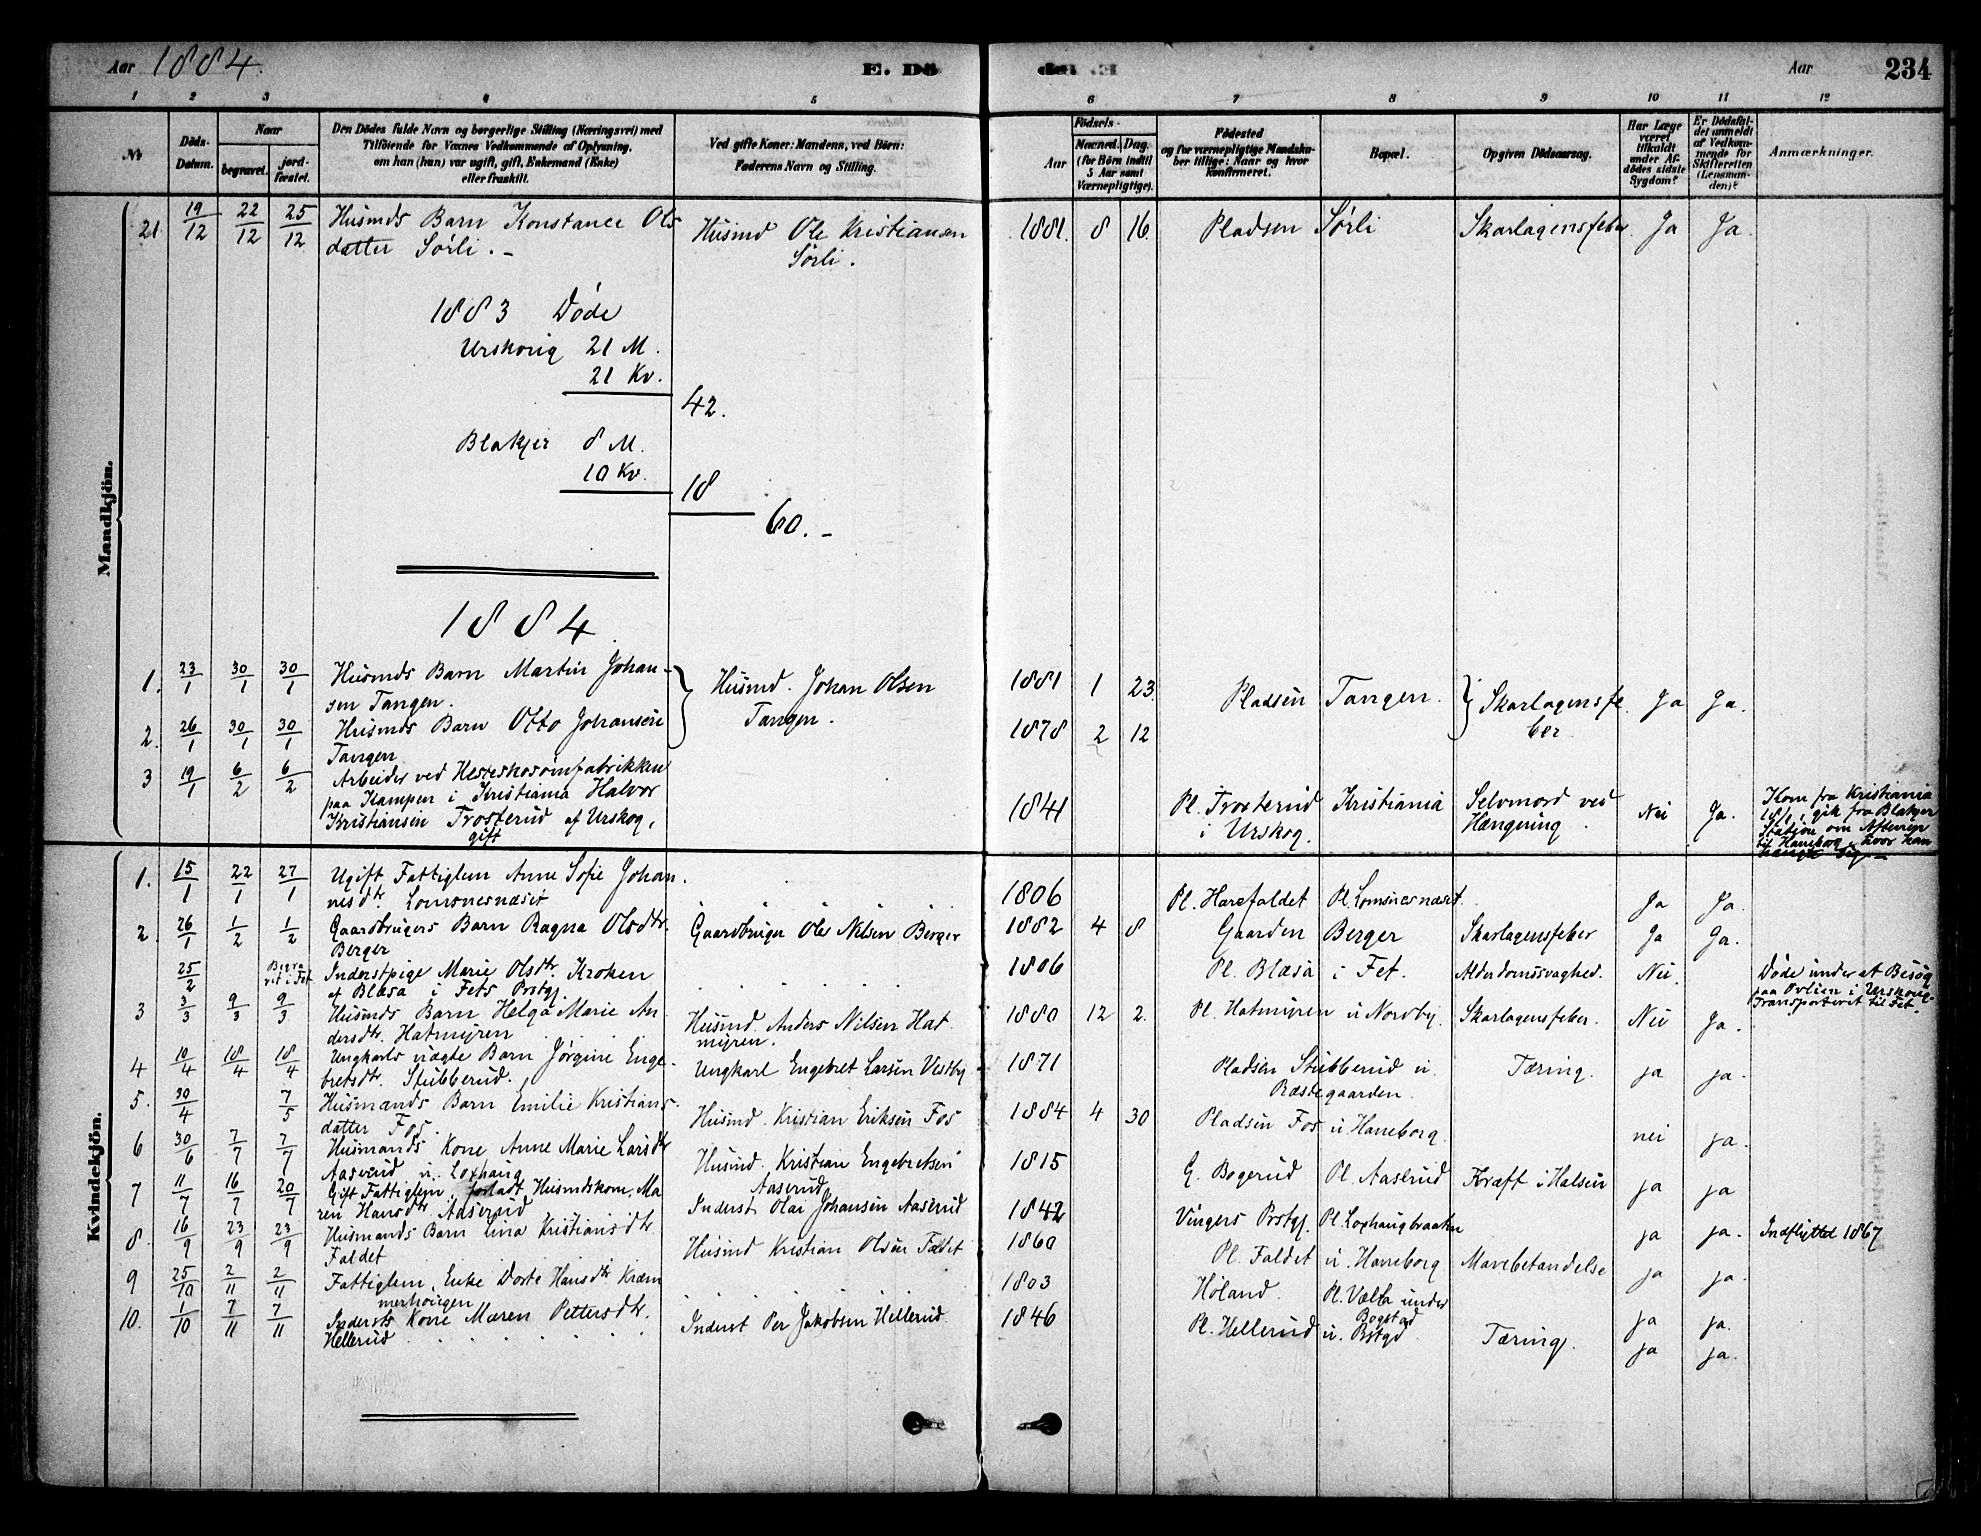 Aar 1884.
E. Dö
Aar
234
1 2 3 4 5 6 7 8 9 10 11 12
No
Döds-Datum.
Naar
begravet.
jord-fæstet.
Den Dödes fulde Navn og borgerlige Stilling (Næringsvei) med
Tilföiende for Voxnes Vedkommende af Oplysning,
om han (hun) var ugift, gift, Enkemand (Enke)
eller fraskilt.
Ved gifte Koner: Mandens, ved Börn:
Faderens Navn og Stilling.
Födsels-
Aar
Maaned. Dag.
(for Börn indtil
5 Aar samt
Værnepligtige).
Födested
og for værnepligtige Mandska-
ber tillige: Naar og hvor
konfirmeret.
Bopæl.
Opgiven Dödsaarsag.
Har Læge
været
tilkaldt
under Af-
dødes sidste
Sygdom?
Er Dödsfal-
det anmeldt
af Vedkom-
mende for
Skifteretten
(Lensman-
den)?
Anmærkninger.
Mandkjön.
21 19/12 22/12 25/12 Husmds Barn Konstance Ols Husmd Ole Kristiansen 1881. 8 16 Pladsen Sørli Skarlagensfeber Ja Ja.
datter Sørli. Sørli.
1883 Døde
Urskoug 21 M.
21 Kv.
42.
Blakjer 8 M.
10 Kv.
18
60.
1884
1. 23/1 30/1 30/1 Husmds Barn Martin Johan- Husmd. Johan Olsen 1881 1 23. Pladsen Tangen. Skarlagensfe Ja Ja.
sen Tangen. Tangen. ber
2. 26/1 30/1 30/1 Husmds Barn Otto Johansen 1878 2 12
Tangen
3 19/1 6/2 6/2 Arbeider ved Hesteskosømfabrikken
paa Kampen i Kristiania Halvor 1841 Pl. Trosterud Kristiania Selvmord ved Nei Ja. Kom fra Kristiania
Kristiansen Trosterud af Urskog, i Urskog. Hængning 18/1, gik fra Blakjer
gift Station om Aftenen
til Haneborg, hvor han
hængte sig
Kvindekjön.
1. 15/1 22/1 27/1 Ugift Fattiglem Anne Sofie Johan. 1806 Pl. Harefaldet Pl. Lomsnesnæset Ja Ja.
nesdtr. Lomsnesnæset
2. 26/1 1/2 1/2 Gaardbrugers Barn Ragna Olsdtr. Gaardbruger Ole Nilsen Berger 1882 4 8 Gaarden Berger Skarlagensfeber Ja Ja.
Berger
25/2 Begravet i Fet Inderstpige Marie Olsdtr. Kroken 1806 Pl. Blæsa i Fet. Alderdomssvaghed. Nei. Døde under et Besøg
af Blæsa i Fets Prstgj. paa Ovlien i Urskoug.
Transporteret til Fet.
3 3/3 9/3 9/3 Husmds Barn Helga Marie An Husmd. Anders Nilsen Hat 1880 12 2. Pl. Hatmyren u Nordby. Skarlagensfeber. Nei Ja.
dersdtr. Hatmyren myren.
4 10/4 18/4 18/4 Ungkarls uægte Barn Jørgine Enge- Ungkarl Engebret Larsen Vestby 1871 Pladsen Stubberud u. Tæring. ja ja.
bretsdtr. Stubberud. Præstegaarden
5. 30/4 7/5 Husmands Barn Emilie Kristians- Husmd. Kristian Eriksen Fos 1884 4 30 Pladsen Fos u Haneborg. nei ja.
datter Fos.
6 30/6 7/7 7/7 Husmands Kone Anne Marie Larsdtr Husmd. Kristian Engebretsen 1815 G. Bogerud Pl. Aaserud Kræft i Halsen ja ja
Aaserud u. Loxhaug Aaserud
7 11/7 16/7 20/7 Gift Fattiglem, forladt Husmdskone, Ma Inderst Olai Johansen Aaserud 1842 Vingers Prstgj. Pl. Loxhaugbraaten ja ja. Indflyttet 1867
ren Hansdtr. Aaserud
8. 16/9 23/9 23/9 Husmands Barn Lina Kristiansdtr Husmd Kristian Olsen Faldet 1860 Pl. Faldet u. Haneborg Mavebetændelse ja ja.
Faldet
9 25/10 2/11 2/11 Fattiglem, Enke Dorte Hansdtr Kram 1803 Høland. Pl. Vælta under ja ja.
merhougen Bogstad
10. 1/10 7/11 7/11 Indersts Kone Maren Pettersdtr. Inderst Per Jakobsen Hellerud. 1846 Pl. Hellerud u. Prstgd Tæring. ja ja.
Hellerud